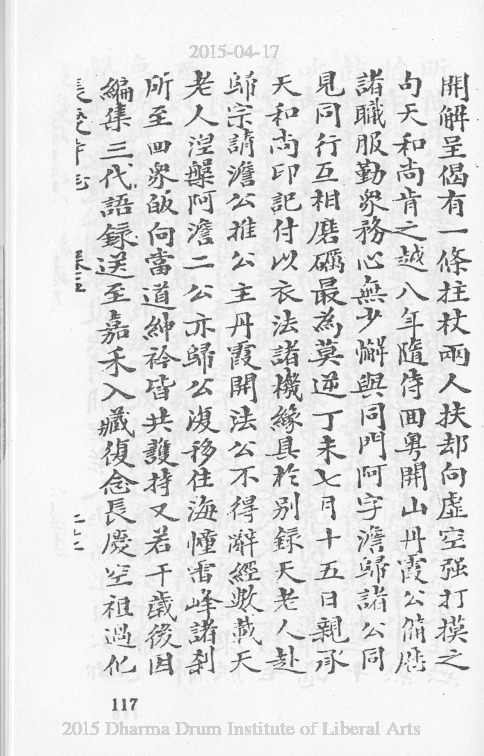 2015-04-17
開解呈偈有一條拄杖兩人扶却向虛空强打摸之
句天和尚肯之越八年隨侍回粵開山丹霞公備歷
諸職服勤衆務心無少懈與同門阿字澹歸諸公同
見同行互相磨礪最為莫逆丁未七月十五日親承
天和尚印記付以衣法諸機緣具於別録天老人赴
歸宗請澹公推公主丹霞開法公不得辭經數載天
老人涅槃阿澹二公亦歸公復移住海幢雷峰諸刹
所至回衆皈向當道紳衿皆共護持又若干歲後因
編集三代語録送至嘉禾入藏復念長慶空祖過化
長慶
117
2015 Dharma Drum Institute of Liberal Arts